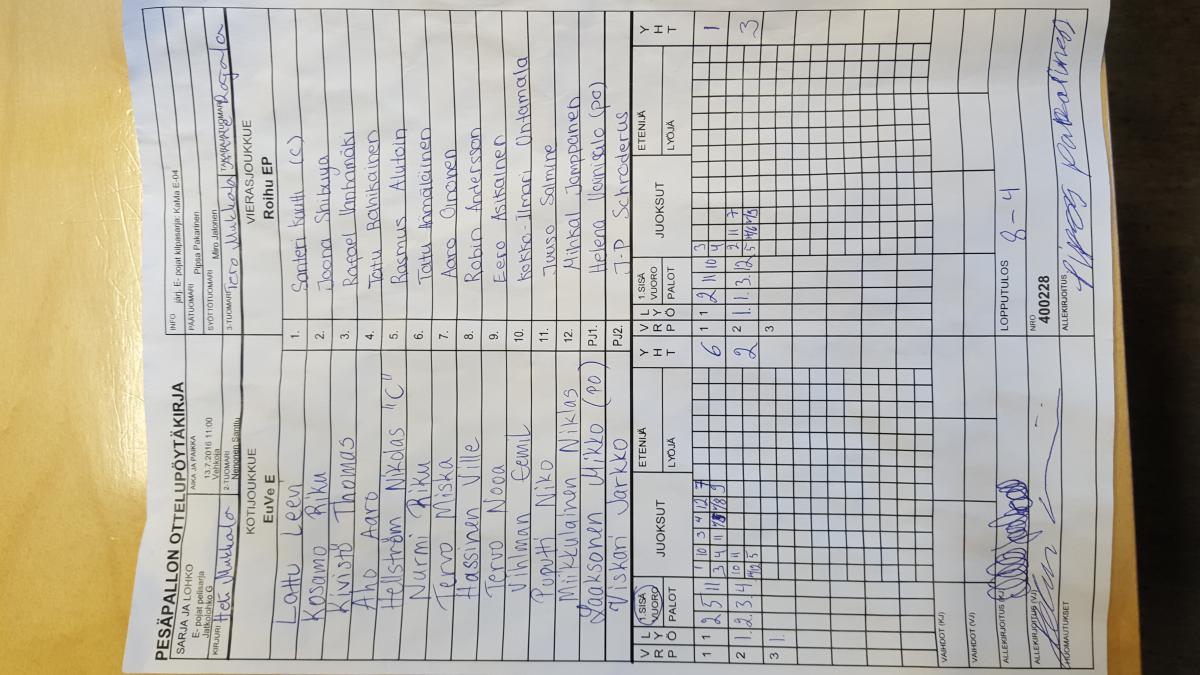 PESÄPALLON OTTELUPÖYTÄKIRJA
SARJA JA LOHKO
E- pojat pelisarja
Jatkolohko G
AIKA JA PAIKKA
13.7.2016 11:00
Vehkoja
INFO järj. E- pojat kilpasarja: KaMa E-04
PÄÄTUOMARI Pipsa Pakarinen
SYÖTTÖTUOMARI Miro Jalonen
KIRJURI Heli Mukkala
2-TUOMARI
Neponen Santtu
3-TUOMARI Tero Mukkala
TAKARAJATUOMARI
KOTIJOUKKUE
EuVe E
VIERASJOUKKUE
Roihu EP
Lattu Leevi
1. Santeri Kautti (C)
Kosamo Riku
2. Joona Shibuya
Kivistö Thomas
3. Rafael Vanhamäki
Aho Aaro
4. Tatu Rahikainen
Hellström Nikolas "C"
5. Rasmus
Nurmi Riku
6. Tatu Hämäläinen
Tervo Miska
7. Aaro Oinonen
Hassinen Ville
8. Robin Andersson
Tervo Nooa
9. Eero Asikainen
Vihlman Eemil
10. Kokko-Ilmari Ontamala
Puputti Niko
11. Juuso Salmine
Miikkulainen Niklas
12. Mihkal Jamppanen
Laaksonen Mikko (PO)
PJ1. Helena Vainisalo (PO)
Viskari Jarkko
PJ2. J-P Schroderus
V R L Y P Ö
1.SISÄ VUORO
PALOT
JUOKSUT
ETENIJÄ
LYÖJÄ
Y H T
V R L Y P Ö
1.SISÄ VUORO
PALOT
JUOKSUT
ETENIJÄ
LYÖJÄ
Y H T
1 1 2 5 11
1 10 3 4 12 7
6
1 1 2 11 10
3
4
1
2 1. 2. 3. 4
10 11
2
2 1. 1. 3. 12
2 11 7
3
3 1.
3
VAIHDOT (KJ)
VAIHDOT (VJ)
ALLEKIRJOITUS (KJ)
LOPPUTULOS 8 - 4
ALLEKIRJOITUS (VJ)
NRO
400228
HUOMAUTUKSET
ALLEKIRJOITUS
Pipsa Pakarinen